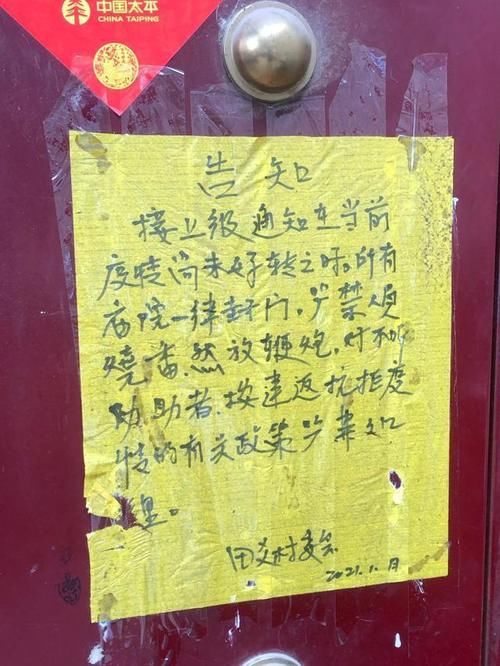 中国太平
CHINA TAIPING
告知
接上级通知在当前
疫情尚未好转之时。所有
庙院一律封门,严禁
烧香,然放鞭炮,对不听
劝助者,按违返抗拒疫
情的有关政策严肃处
理。
田义村委会
2021.1.月